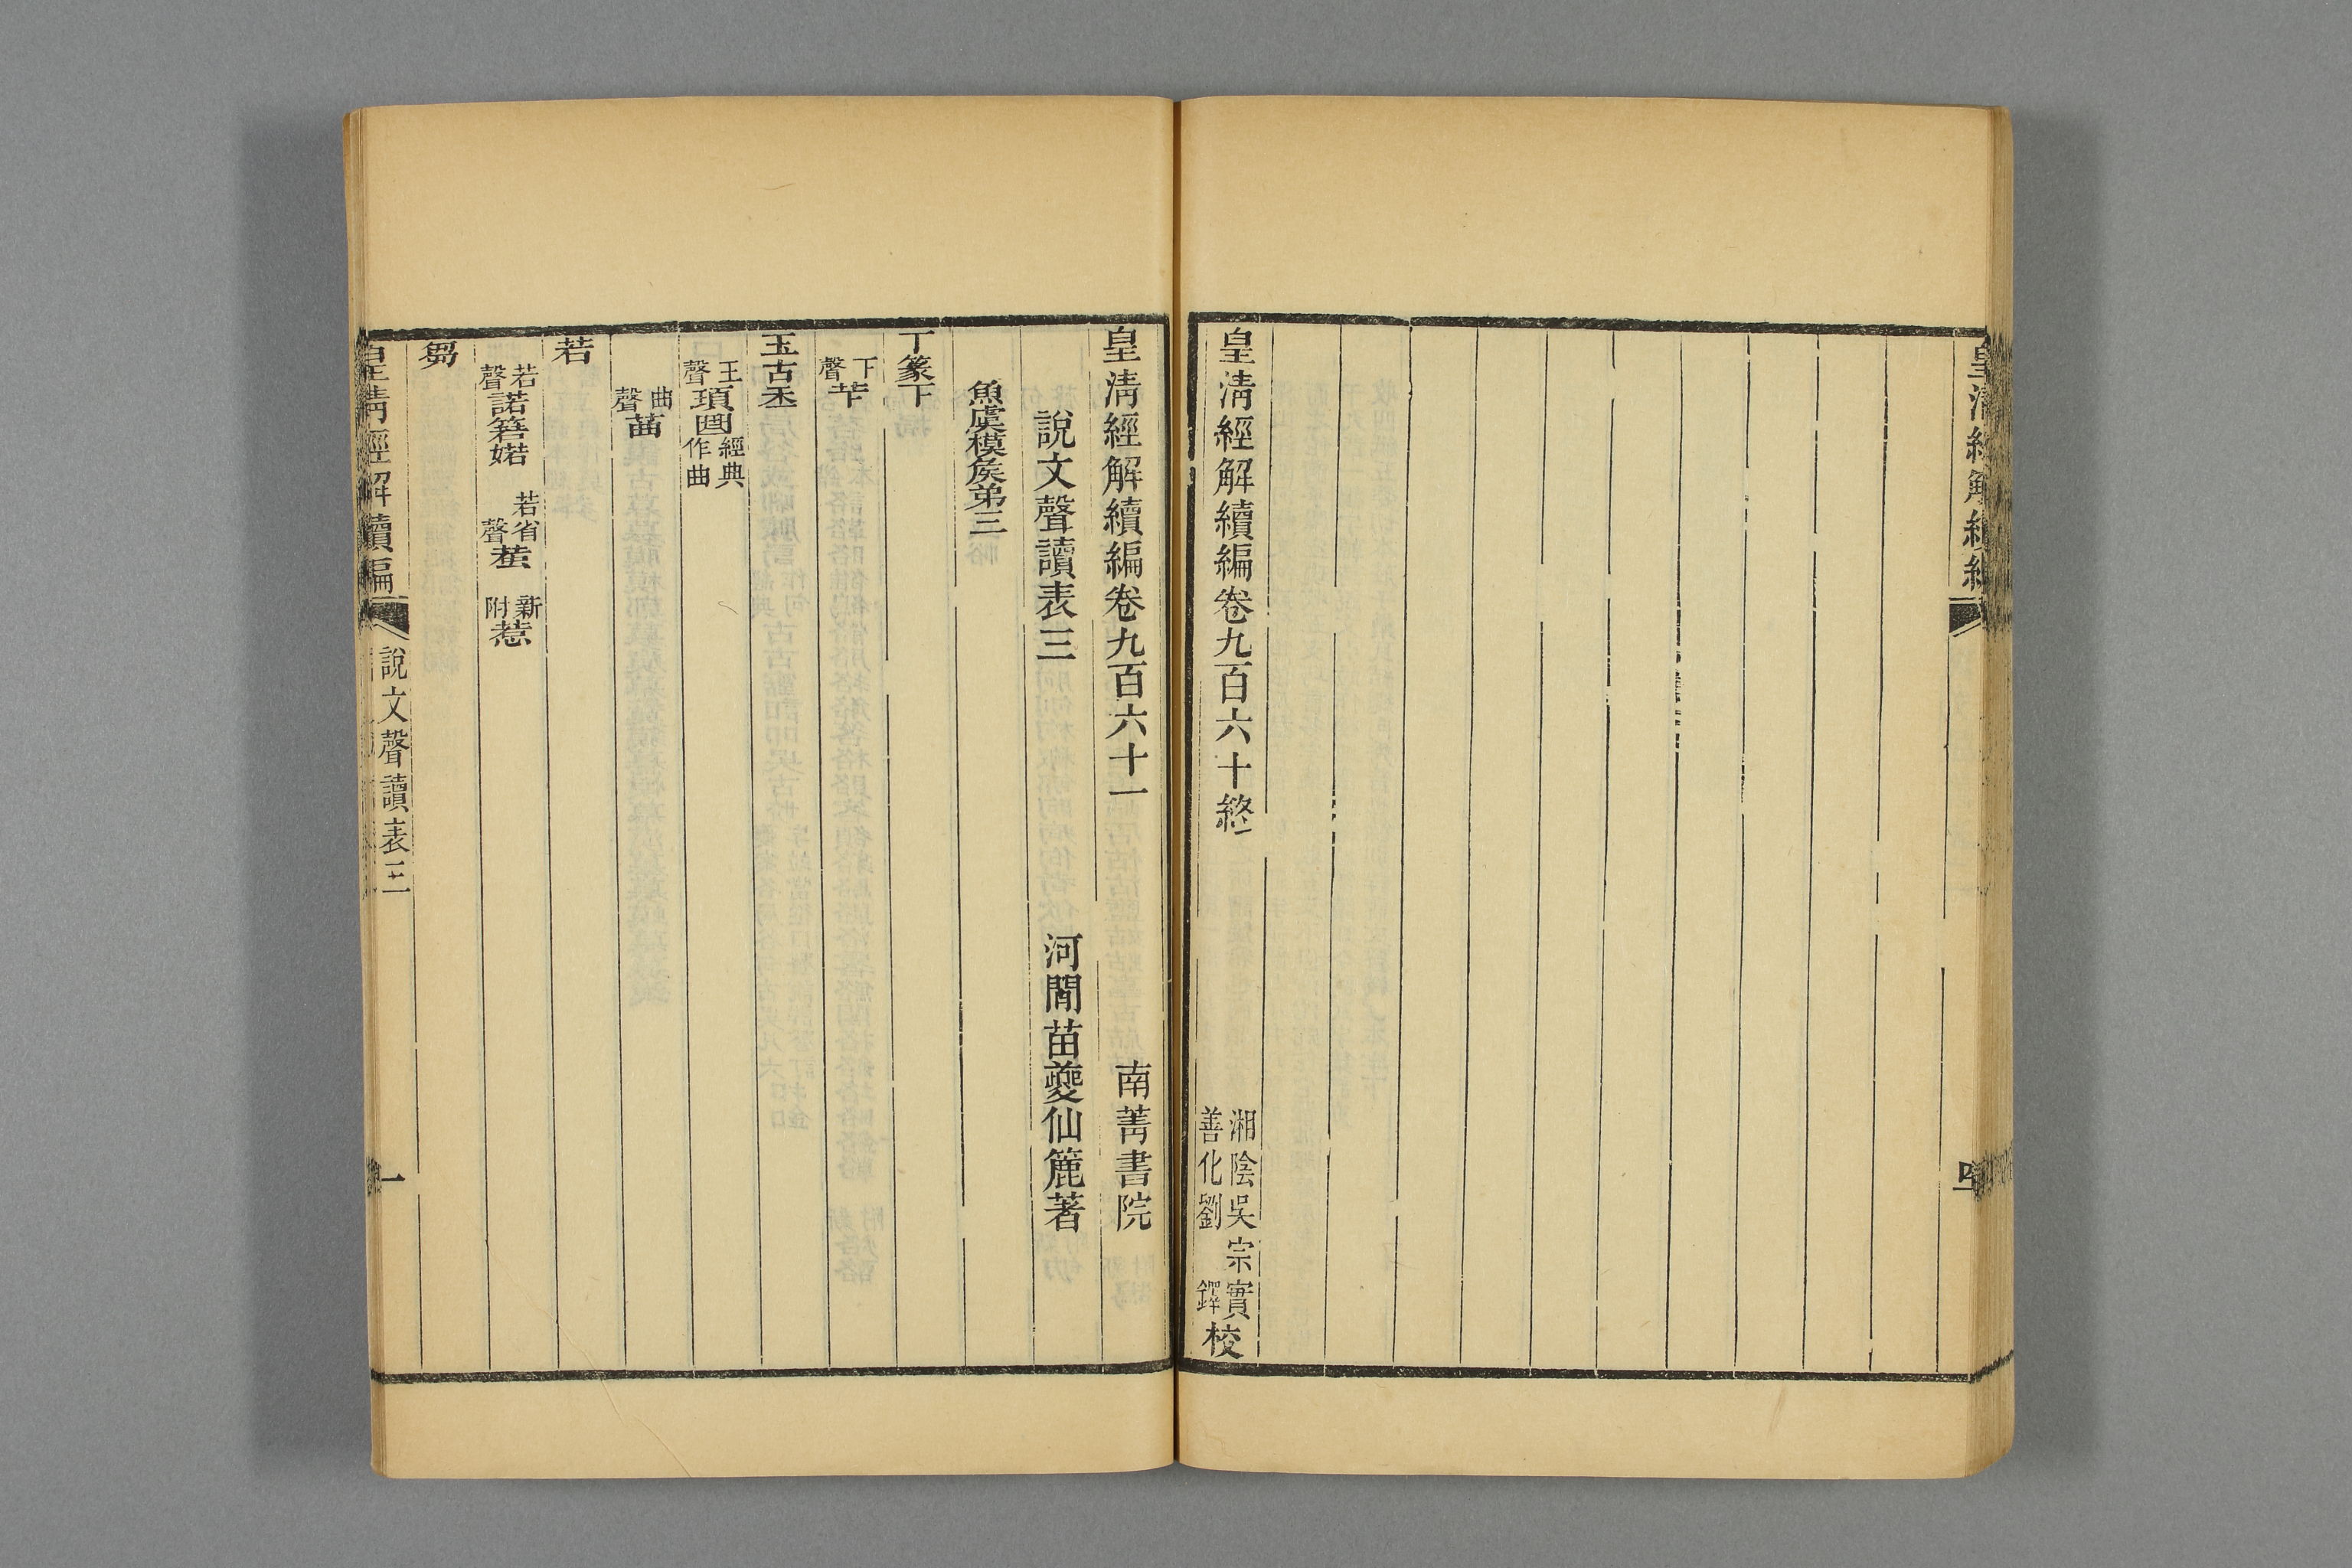 皇清經解續編
皇清經解續編卷九百六十終
湘陰吳宗實
善化劉鐸
校
皇清經解續編卷九百六十一
南菁書院
說文聲讀表三
河間苗夔仙簏著
魚虞模矦弟三
丅篆下
下聲芐
玉古𤣪
王聲頊𠚖經典作曲
曲聲苗
若
若聲諾箬婼
若省聲𧍷
新附惹
芻
皇清經解續編
說文聲讀表三
一